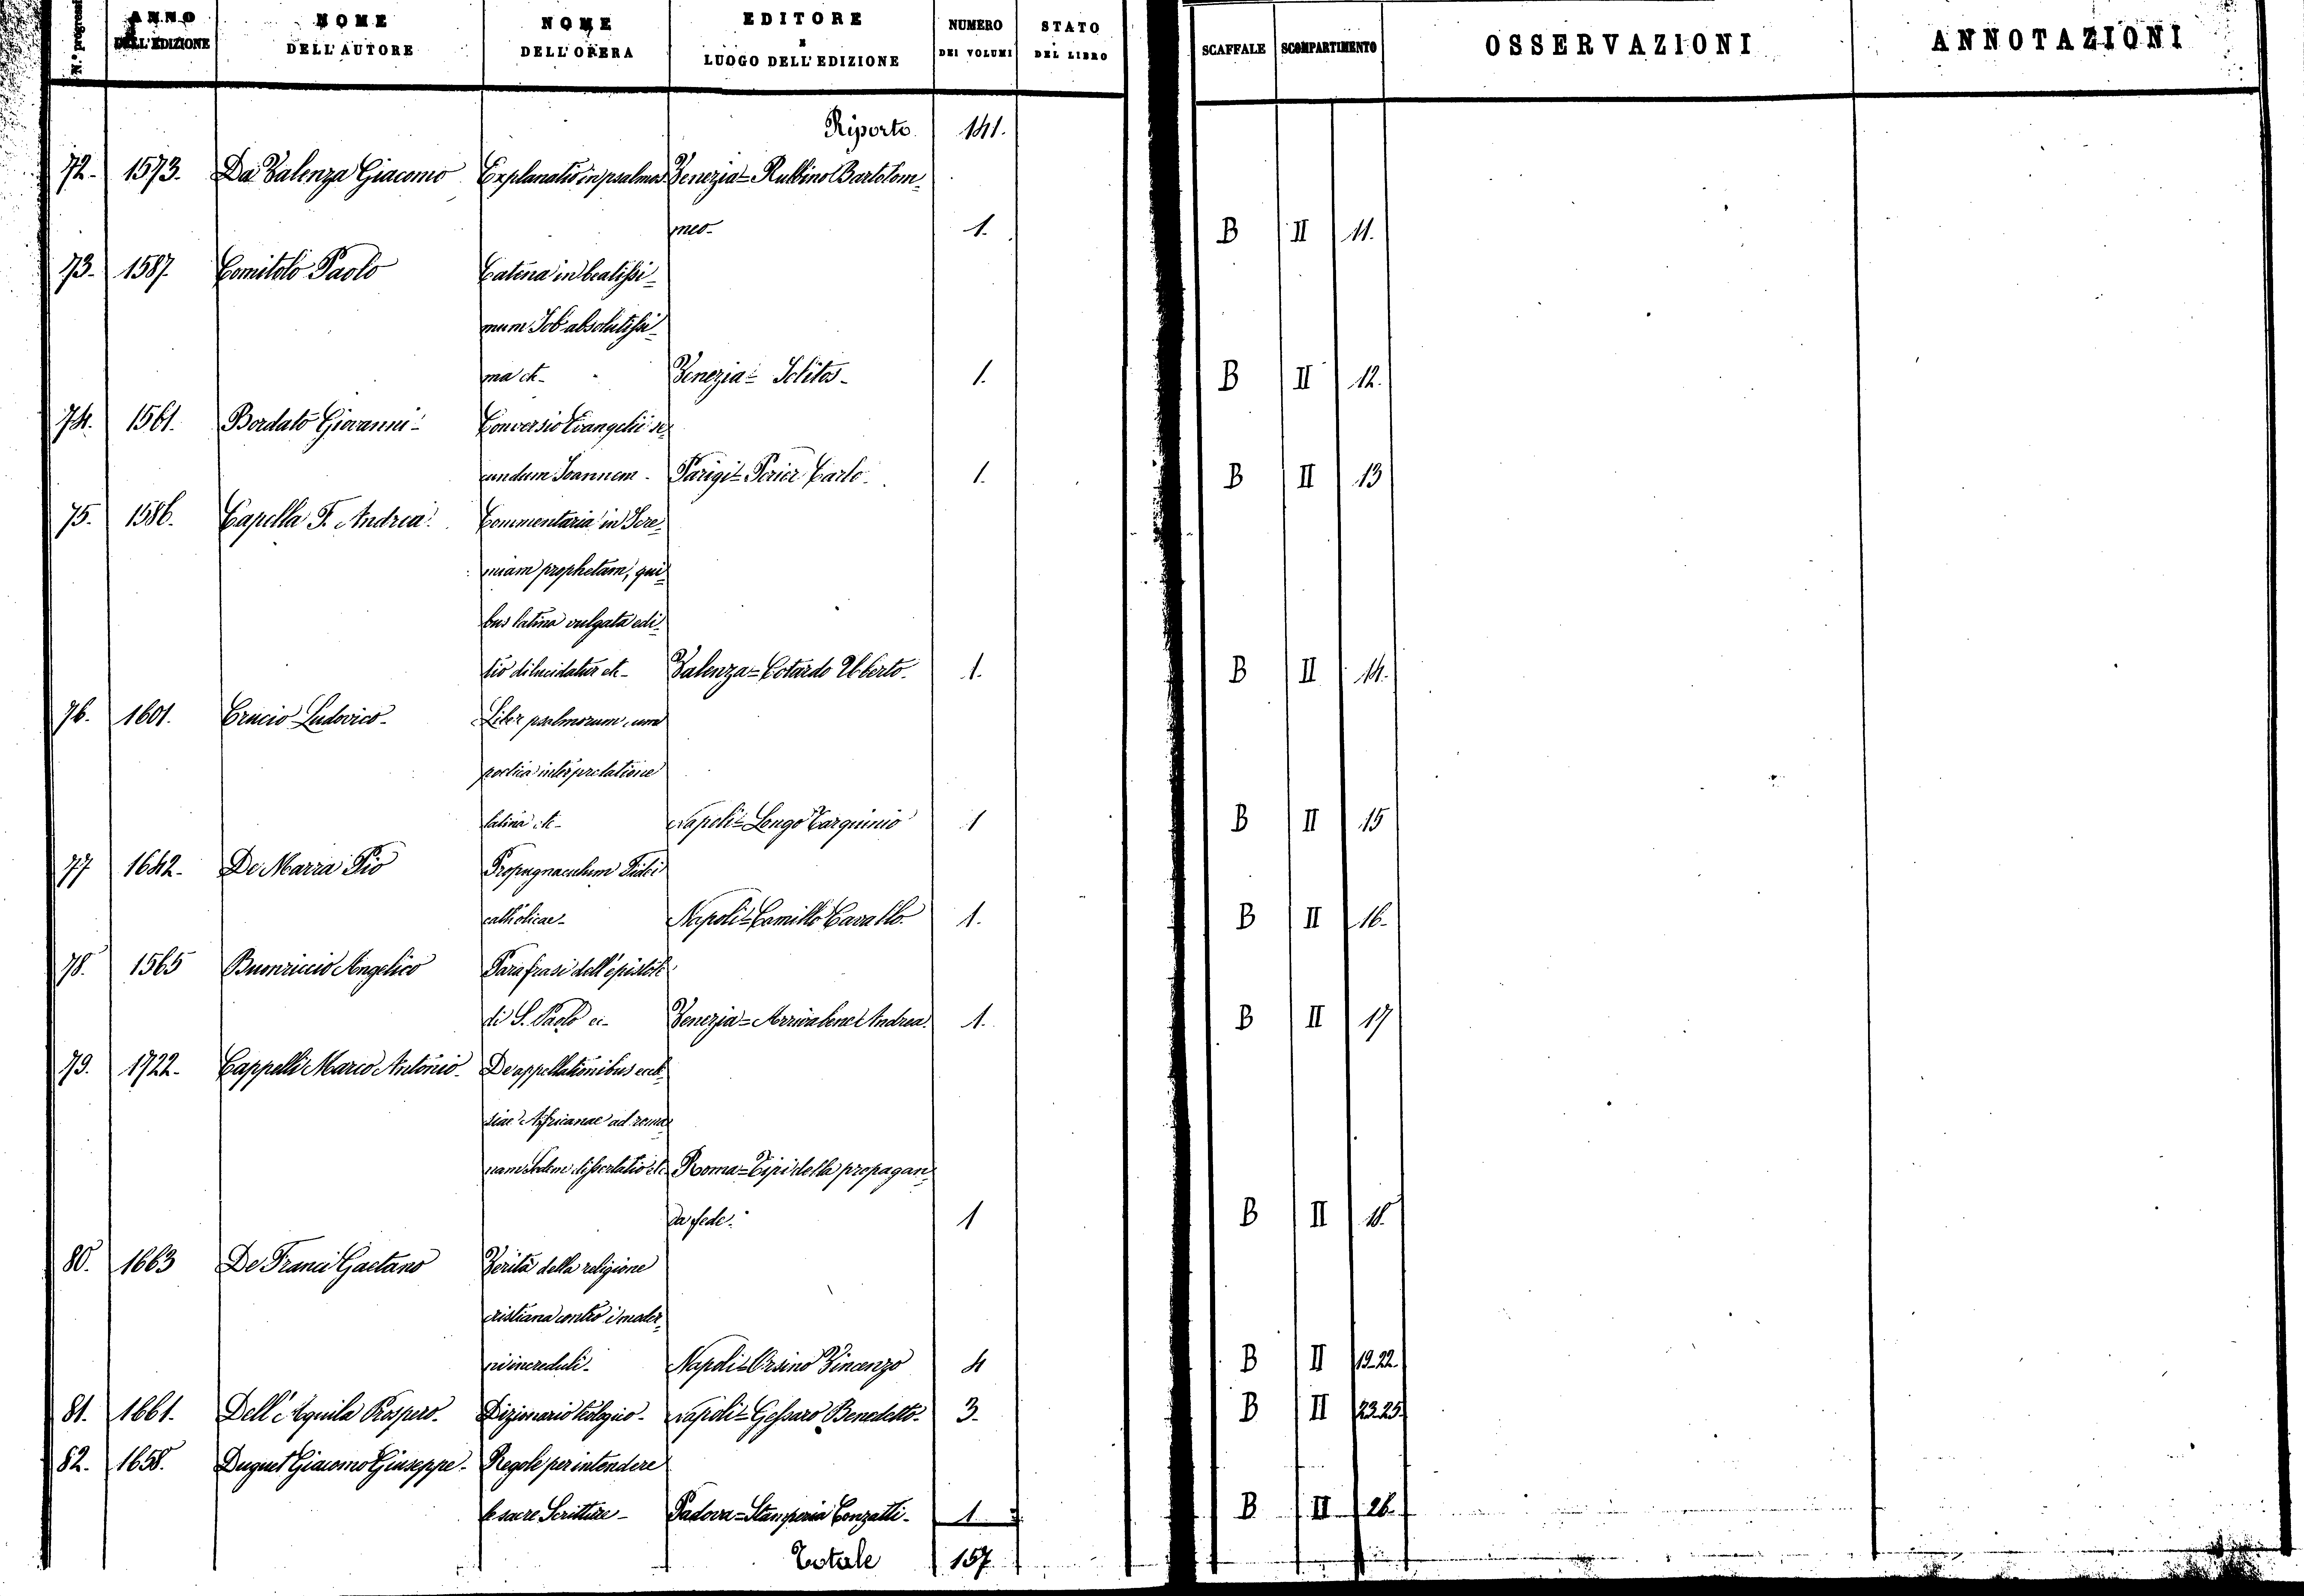 N.° progress. ANNO DELL'EDIZIONE NOME DELL'AUTORE NOME DELL'OPERA EDITORE E LUOGO DELL'EDIZIONE NUMERO DEI VOLUMI STATO DEL LIBRO SCAFFALE SCOMPARTIMENTO OSSERVAZIONI ANNOTAZIONI
Riporto 141.
72. 1573. Da Valenza Giacomo Explanatio in psalmos Venezia = Rubbino Bartolom=
meo. 1. B II 11.
73. 1587. Comitolo Paolo Catena in beatissi=
mum Job absolutissi=
ma etc. Venezia = Iolitos. 1. B II 12.
74. 1561. Bordato Giovanni. Conversio Evangelii se=
cundum Joannem. Parigi = Perier Carlo. 1. B II 13
75. 1586. Capella F. Andrea. Commentaria in Jere=
miam prophetam, qui=
bus latina vulgata edi=
tio dilucidatur etc. Valenza = Cotardo Uberto. 1. B II 14.
76. 1601. Crucio Ludovico. Liber psalmorum cum
poetica interpretatione
latina etc. Napoli = Longo Tarquinio 1 B II 15
77 1642. De Marra Pio Propugnaculum Fidei
catholicae. Napoli = Camillo Cavallo. 1. B II 16.
78. 1565 Buonriccio Angelico Parafrasi dell'epistole
di S. Paolo ec. Venezia = Arrivabene Andrea. 1. B II 17
79. 1722. Cappelli Marco Antonio. De appellationibus eccle=
siae Africanae ad roma=
nam Sedem dissertatio etc. Roma = Tipi della propagan=
da fede. 1 B II 18.
80. 1663 De Franci Gaetano Verità della religione
cristiana contro i moder=
ni increduli. Napoli = Orsino Vincenzo 4 B II 19-22.
81. 1661. Dell'Aquila Prospero. Dizionario teologico. Napoli = Gessaro Benedetto. 3. B II 23-25.
82. 1658. Duguet Giacomo Giuseppe. Regole per intendere
le sacre Scritture. Padova = Stamperia Conzatti. 1 B II 26.
Totale 157